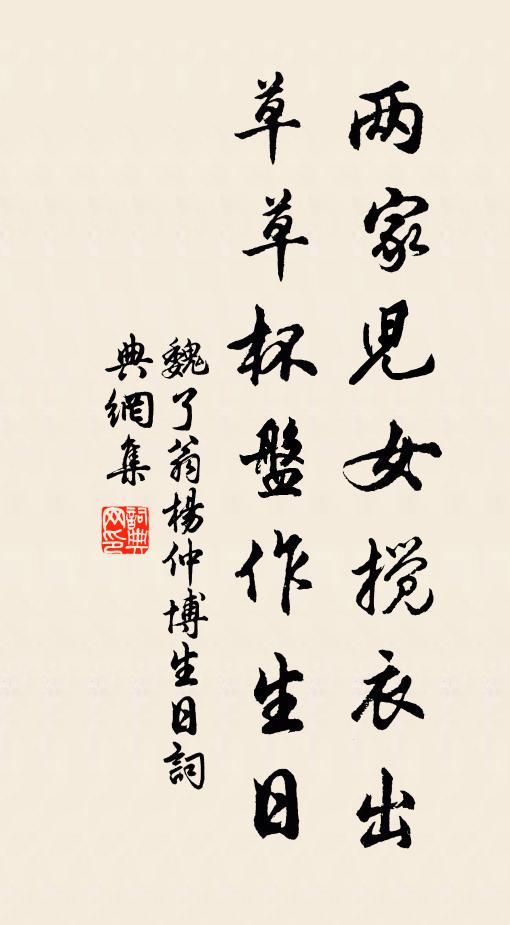 两家児女搅衣出
草草杯盤作生日
魏了翁楊仲博生日詞
典網集
詞典
网印